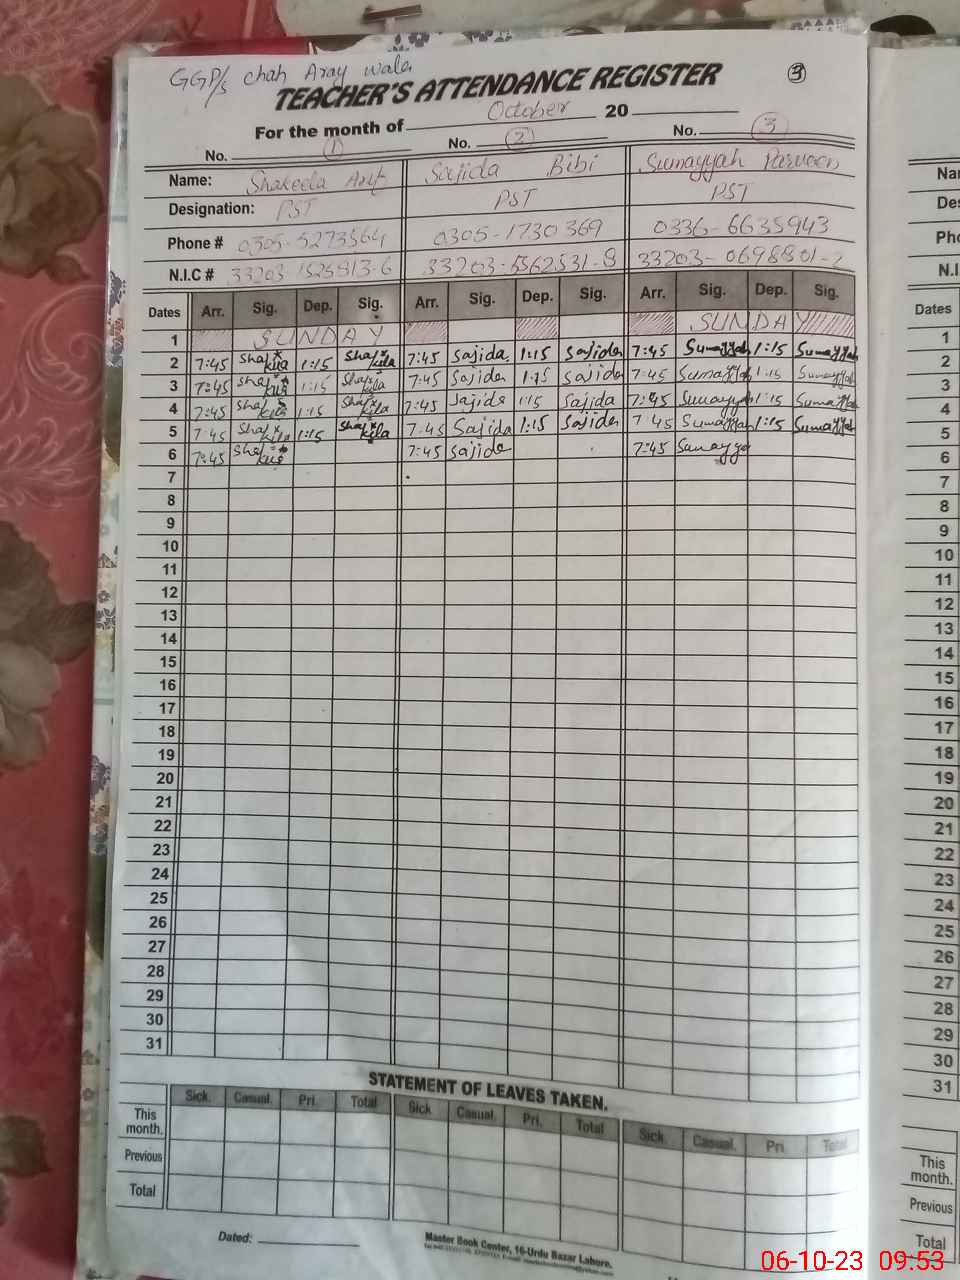 GGP/s chah Aray wala
3
TEACHER'S ATTENDANCE REGISTER
For the month of October 20
No. 1 No. 2 No. 3
Name: Shakeela Arif Sajida Bibi Sumayyah Parveen
Designation: PST PST PST
Phone # 0305-5273564 0305-1730369 0336-6635943
N.I.C # 33203-1525913-6 33203-5562531-8 33203-0698801-2
Dates Arr. Sig. Dep. Sig. Arr. Sig. Dep. Sig. Arr. Sig. Dep. Sig.
1 SUNDAY SUNDAY
2 7:45 Shakila 1:15 Shakila 7:45 Sajida 1:15 Sajida 7:45 Sumayyah 1:15 Sumayyah
3 7:45 1:15 Shakila 7:45 Sajida 1:15 Sajida 7:45 Sumayyah 1:15 Sumayyah
4 7:45 1:15 Shakila 7:45 Sajida 1:15 Sajida 7:45 Sumayyah 1:15 Sumayyah
5 7:45 Shakila 1:15 Shakila 7:45 Sajida 1:15 Sajida 7:45 Sumayyah 1:15 Sumayyah
6 7:45 7:45 Sajida 7:45 Sumayya
7
8
9
10
11
12
13
14
15
16
17
18
19
20
21
22
23
24
25
26
27
28
29
30
31
STATEMENT OF LEAVES TAKEN.
Sick. Casual. Pri. Total Sick Casual. Pri. Total Sick. Casual. Pri Total
This month.
Previous
Total
Dated:
Master Book Center, 16-Urdu Bazar Lahore.
Dates
1
2
3
4
5
6
7
8
9
10
11
12
13
14
15
16
17
18
19
20
21
22
23
24
25
26
27
28
29
30
31
This month.
Previous
Total
06-10-23 09:53